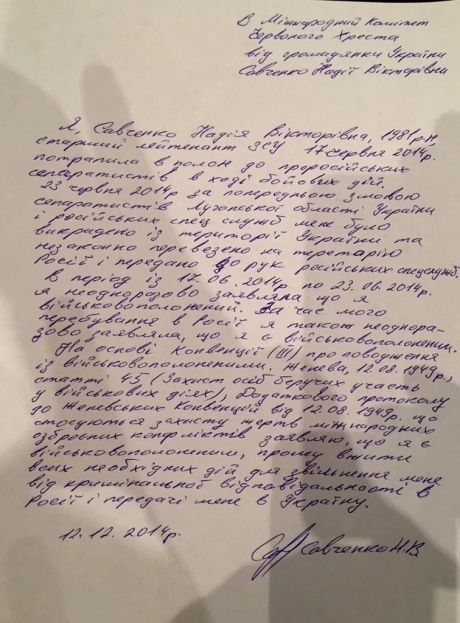 В Міжнародний Комітет
Червоного Хреста
від громадянки України
Савченко Надії Вікторівни
Я, Савченко Надія Вікторівна, 1981 р.н,
старший лейтенант ЗСУ 17 червня 2014р.
потрапила в полон до проросійських
сепаратистів в ході бойових дій.
23 червня 2014р за попередньою змовою
сепаратистів Луганської області України
і російських спец служб мене було
викрадено із території України та
незаконно перевезено на територію
Росії і передано до рук російських спецслужб.
В період із 17.06.2014р. по 23.06.2014р.
я неодноразово заявляла що я
військовополонений. За час мого
перебування в Росії я також неоднора-
зово заявляла, що я є військовополоненим.
На основі Конвенції (III) про поводження
із військовополоненими. Женева, 12.08.1949р.,
статті 45 (Захист осіб беручих участь
у військових діях), Додаткового протоколу
до Женевських Конвенцій від 12.08.1949р. що
стосуються захисту жертв міжнародних
озброєних конфліктів заявляю, що я є
військовополоненим, прошу вжити
всіх необхідних дій для звільнення мене
від кримінальної відповідальності в
Росії і передачі мене в Україну.
12.12.2014р.
Савченко Н.В